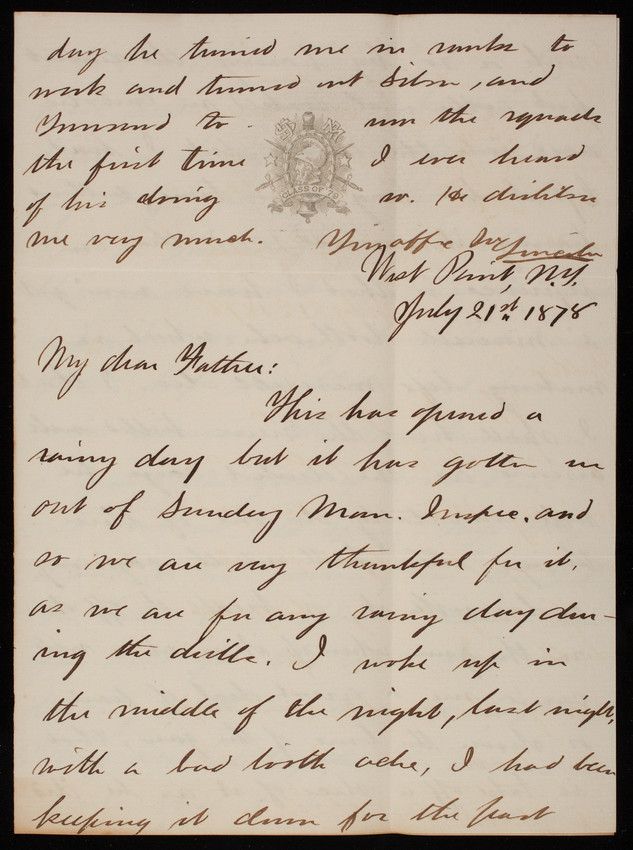 day he turned me in ranks to
work and turned out Silsn, and
Townsend to run the squads
the first time I ever heard
of his doing so. He dislikes
me very much. Your affec
CLASS OF 79
West Point, N.Y.
July 21st 1878
My dear Father:
This has opened a
rainy day but it has gotten us
out of Sunday Morn. Inspec. and
so we are very thankful for it,
as we are for any rainy day dur-
ing the drills. I woke up in
the middle of the night, last night,
with a bad tooth ache, I had been
keeping it down for the past